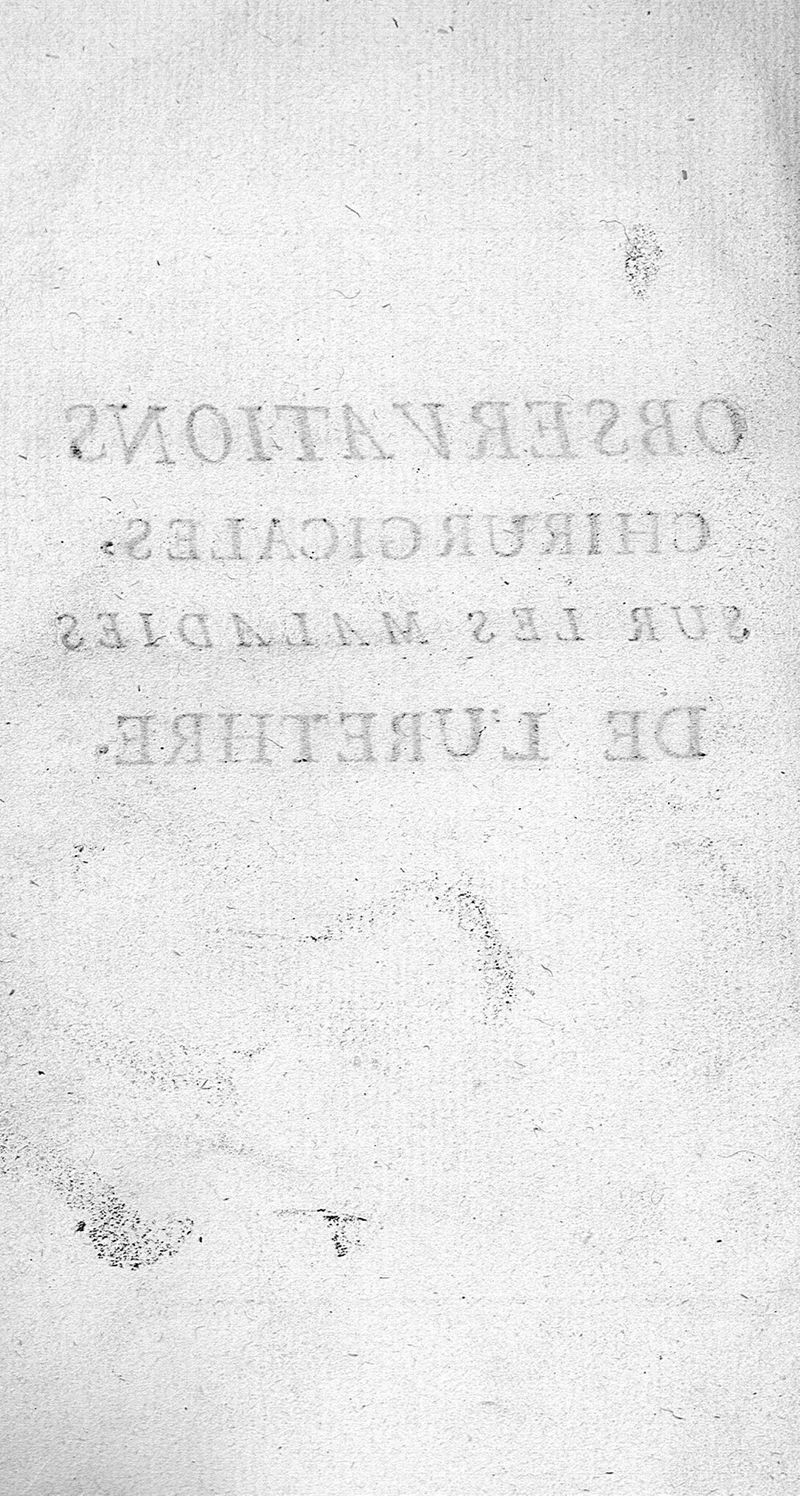 OBSERVATIONS
CHIRURGICALES.
SUR LES MALADIES
DE L'URETHRE.